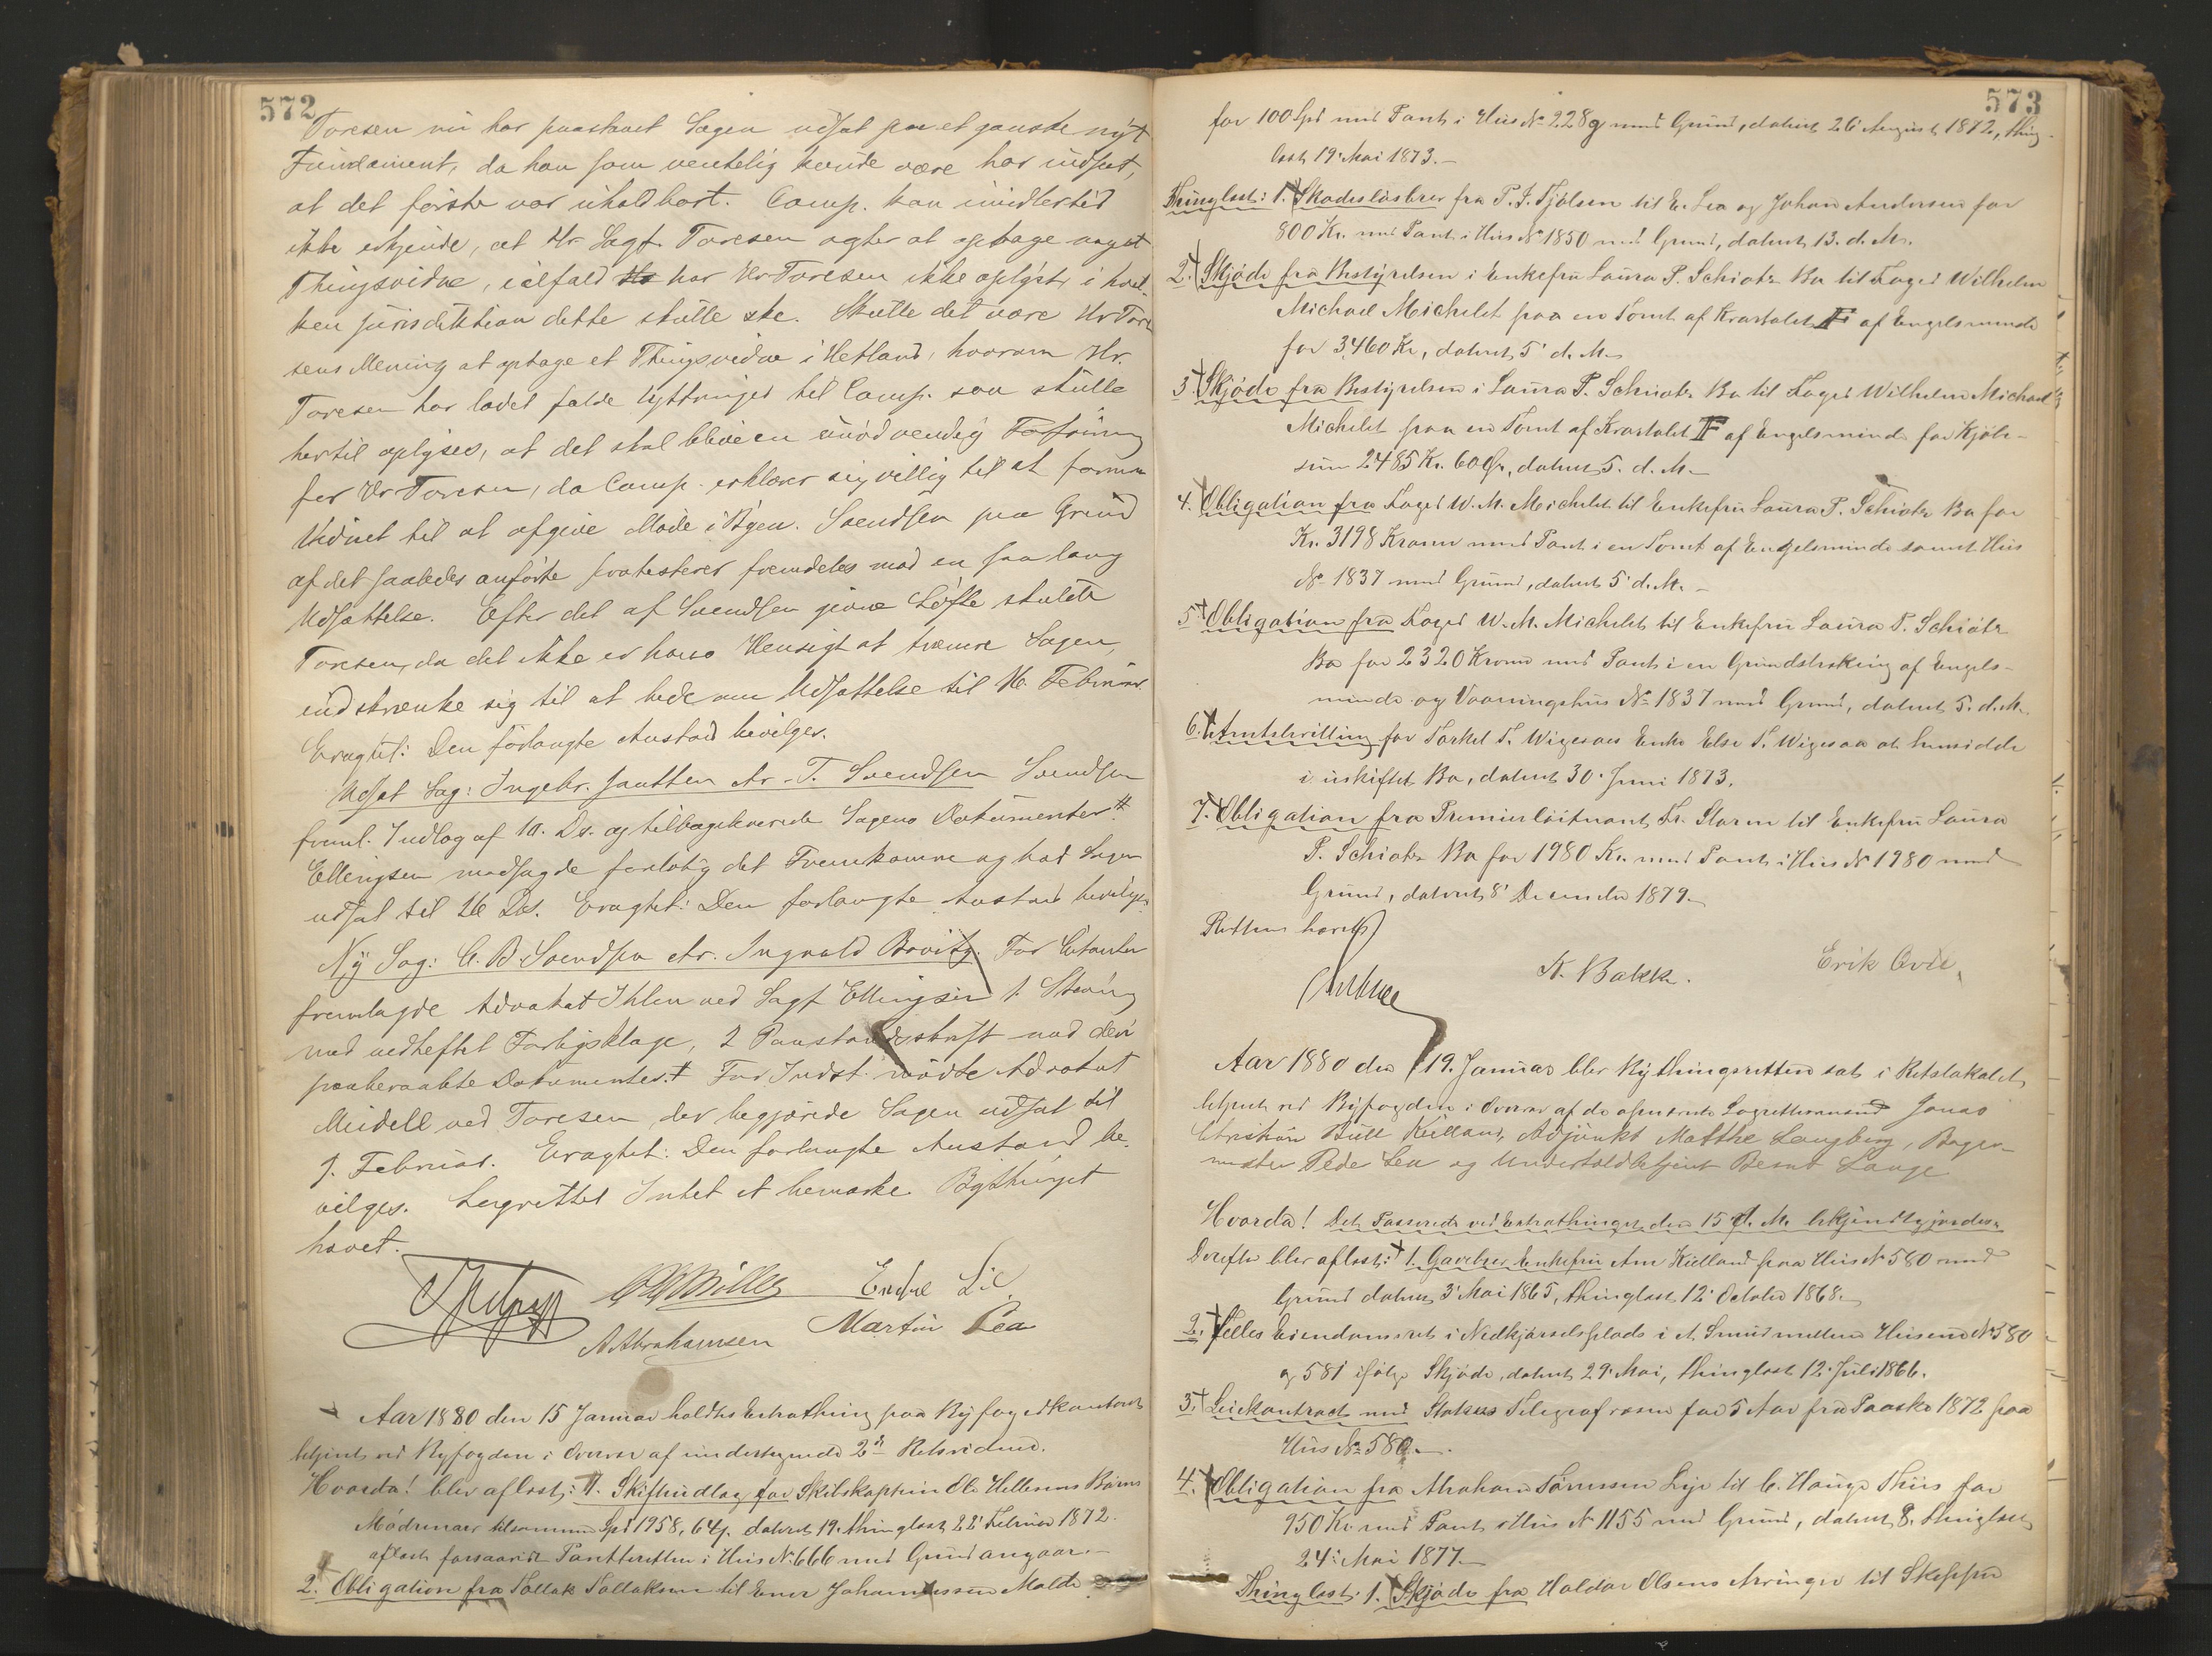 572
Toresen nu har paastaaet Sagen udsat paa et ganske nyt
Fundament, da han som ventelig kunde være har indseet,
at det förste var uholdbart. Comp. kan imidlertid
ikke erkjende, at Hr Sagf. Toresen agter at optage noget
Thingsvidne, ialfald har Hr Toresen ikke oplyst, i hvil-
ken jurisdiktion dette skulle ske. Skulle det være Hr Tore
sens Mening at optage et Thingsvidne i Hetland, hvorom Hr.
Toresen har ladet falde Yttringer til Comp. saa skulle
hertil oplyses, at det skal blive en unödvendig
for Hr Toresen, da Comp. erklærer sig villig til at formaa
Vidnet til at afgive Möde i Byen. Svendsen paa Grund
af det saaledes anförte protesterer fremdeles mod en saa lang
Udsættelse. Efter det af Svendsen givne Löfte skulde
Toresen, da det ikke er hans Hensigt at trænere Sagen,
indskrænke sig til at bede om Udsættelse til 16 Februar.
Eragtet: Den forlangte Anstand bevilges.
Udsat Sag: Ingebr. Jautten Ar. T. Svendsen Svendsen
freml. Indlæg af 10. Ds. og tilbageleverede Sagens Dokumenter.
Ellingsen modsagde forlöbig det Fremkomne og bad Sagen
udsat til 26 Ds. Eragtet: Den forlangte Anstand bevilges.
Ny Sag: C. B. Svendsen Ar. Ingvald For Citanten
fremlagde Advokat Ihlen ved Sagf Ellingsen 1. Stevning
med vedheftet Forligsklage, 2 Paastandsskrift med den
paaberaabte Dokumenter. For Indst. mödte Advokat
Meidell ved Toresen, der begjærede Sagen udsat til
9. Februar. Eragtet: Den forlangte Anstand be-
vilges. Lagrettet Intet at bemærke. Bythinget
hævet.
Endre Lie
A Abrahamsen Martin Lea
Aar 1880 den 15 Januar holdtes Extrathing paa Byfogedkontoret
betjent ved Byfogden i Overvær af undertegnede 2de Retsvidner.
Hvorda! blev aflæst: 1. Skifteudlæg for Skibskaptein Ole Hellesens Börns
Mödrenearv tilsammen Spd 1958, 64 s. dateret 19. thinglæst 22' Februar 1872.
aflæst forsaavidt Panteretten i Huus No 666 med Grund angaar.
2. Obligation fra Tollak Tollaksen til Ener Johannessen Molde
573
for 100 Spd med Pant i Huus No 228g med Grund, dateret 26' August 1872, thing-
læst 19' Mai 1873.
Thinglæst: 1. Skadeslösbrev fra P. J. Tjölsen til E. Lea og Johan Andersen for
800 Kr. med Pant i Huus No 1850 med Grund, dateret 13. d. M.
2. Skjöde fra Bestyrelsen i Enkefru Laura P. Schiötz Bo til Foged Wilhelm
Michael Michelet paa en Tomt af Kvartalet F af Engelsminde
for 3460 Kr, dateret 5' d. M.
3. Skjöde fra Bestyrelsen i Laura P. Schiötz Bo til Foged Wilhelm Michael
Michelet paa en Tomt af Kvartalet F af Engelsminde for Kjöbe-
sum 2485 Kr. 60 Ør, dateret 5. d. M.
4. Obligation fra Foged W. M. Michelet til Enkefru Laura P. Schiötz Bo for
Kr. 3198 Kroner med Pant i en Tomt af Engelsminde samt Huus
No 1837 med Grund, dateret 5' d. M.
5. Obligation fra Foged W. M. Michelet til Enkefru Laura P. Schiötz
Bo for 2320 Kroner med Pant i en Grundstrækning af Engels-
minde og Vaaningshuus No 1837 med Grund, dateret 5. d. M.
6. Amtsbevilling for Torkel T. Wigesaas Enke Else T. Wigesaa at hensidde
i uskiftet Bo, dateret 30. Juni 1873.
7. Obligation fra Premierlöitnant Fr. Storm til Enkefru Laura
P. Schiötz Bo for 1980 Kr. med Pant i Huus No 1980 med
Grund, dateret 8' December 1879.
Retten hævet
K. Bakke. Erik
Aar 1880 den 19. Januar blev Bythingsretten sat i Retslokalet,
betjent ved Byfogden i Overvær af de opnævnte Lagrettesmænd Jonas
Christian Bull Kielland, Adjunkt Matthe Langberg, Bager-
mester Peder Lea og Undertoldbetjent Bernt Lange
Hvorda! Det Passerede ved Extrathinget den 15 d. M. bekjendtgjordes.
Derefter blev aflæst: 1. Gavebrev Enkefru Ane Kielland paa Huus No 580 med
Grund dateret 3' Mai 1865, thinglæst 12' October 1868.
2. Fælles Eiendomsret i Nedkjörselsplads i et Smug mellem Husene No 580
og 581 ifölge Skjöde, dateret 29. Mai, thinglæst 12. Juli 1866.
3. Leiekontract med Statens Telegrafvæsen for 5 Aar fra Paaske 1872 paa
Huus No 580.
4. Obligation fra Abraham Lye til C. Hauge Thiis for
950 Kr med Pant i Huus No 1155 med Grund, dateret 8. thinglæst
24' Mai 1877.
Thinglæst: 1. Skjöde fra Haldor Olsens Arvinger til Skipper